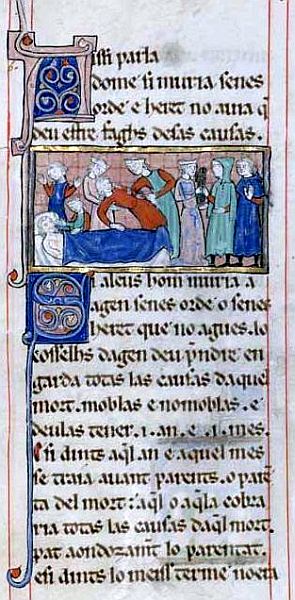 Aissi parla
dome si muria senes
orde e heret no auia q̄
deu estre faghs de sas causas.
Si alcus hom muria a
agen senes orde o senes
heret que no agues. lo
cosselhs dagen deu p̄ndre en
garda totas las causas daquel
mort. moblas e no moblas. e
deu las tener .i. an. e .i. mes.
e si dints aq̄l an e aquel mes
se traia auant parents. o parē
ta del mort. aq̄l o aq̄la cobra
ria totas las causas daq̄l mort.
lo parentat.
e si dints lo meiss terme no era